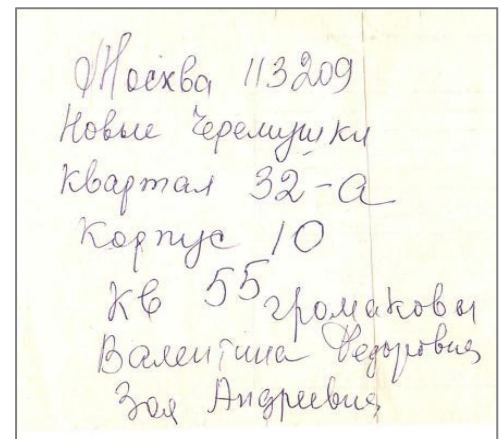 Москва 113209
Новые Черемушки
квартал 32-а
Корпус 10
кв 55 громаковы
Валентина Федоровна
Зоя Андреевна